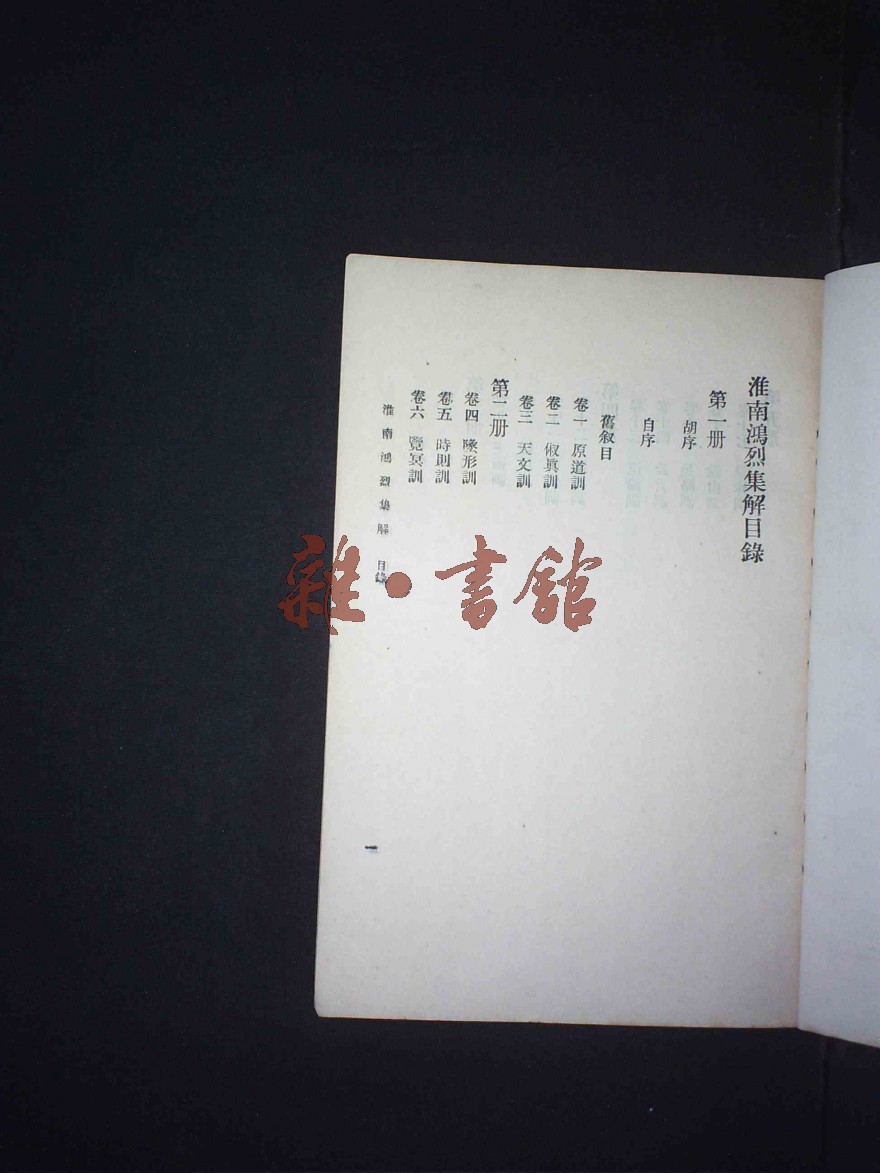 淮南鴻烈集解目錄
第一册
胡序
自序
舊叙目
卷一 原道訓
卷二 俶眞訓
卷三 天文訓
第二册
卷四 墬形訓
卷五 時則訓
卷六 覽冥訓
淮南鴻烈集解 目錄
一
雜·書館